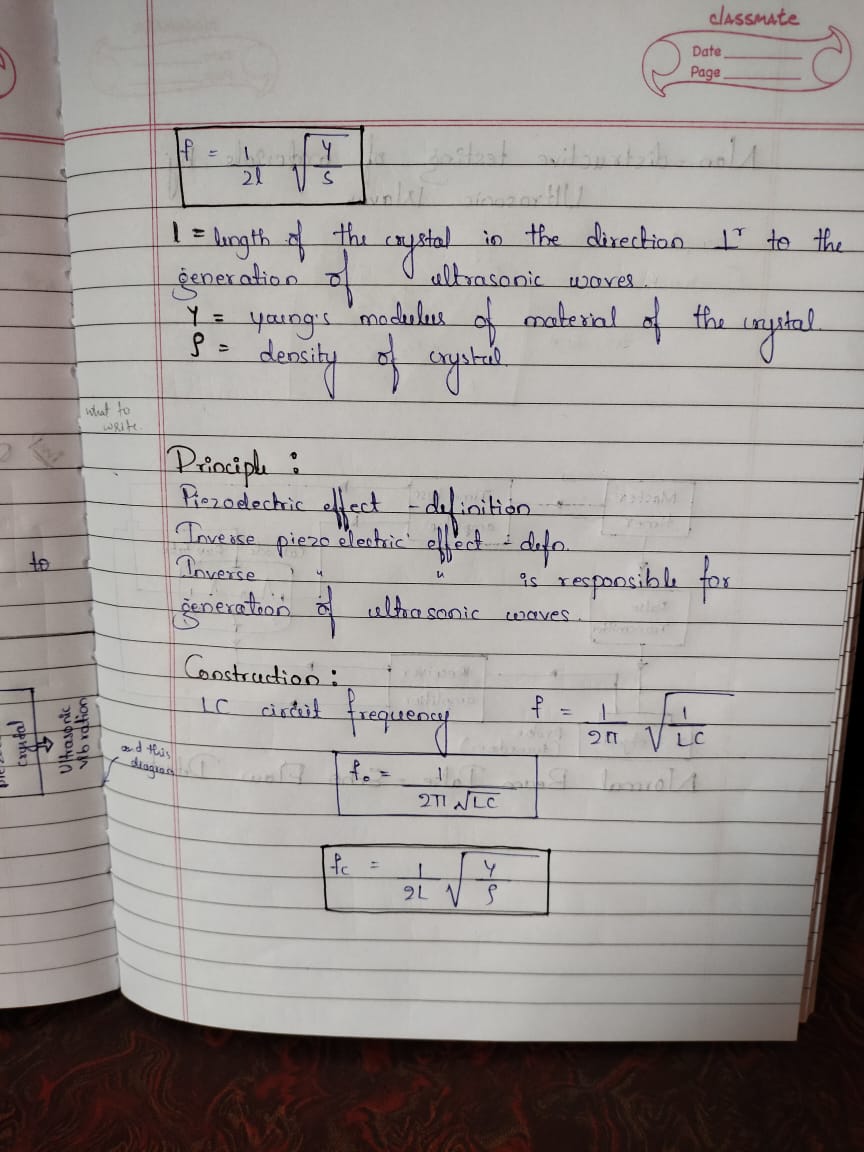 classmate
Date
Page
f = 1/2l √(Y/S)
l = length of the crystal in the direction ⊥r to the
generation of ultrasonic waves.
Y = young's modulus of material of the crystal.
ρ = density of crystal.
what to
write.
Principle :
Piezoelectric effect - definition
Inverse piezo electric effect - defn.
Inverse " " is responsible for
generation of ultrasonic waves.
to
Construction :
LC circuit frequency f = 1/2π √(1/LC)
crystal
Ultrasonic
vibration
and this
diagram
f₀ = 1/2π√LC
fc = 1/2L √(Y/ρ)